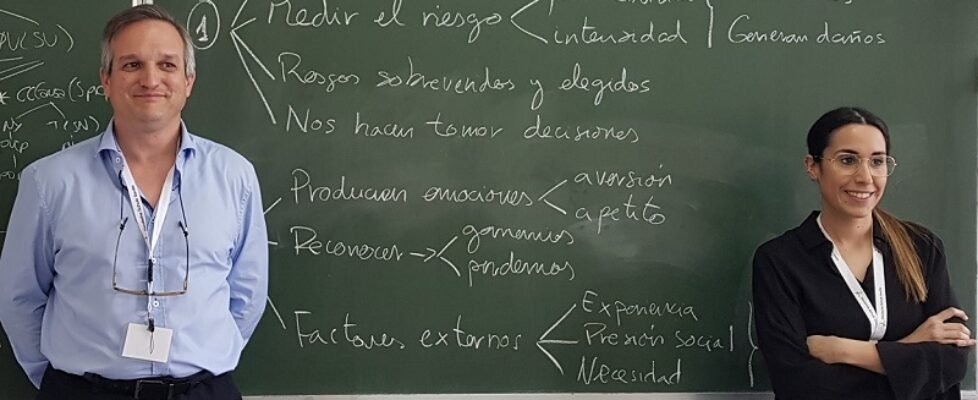 1 Medir el riesgo
intensidad
Generan daños
Riesgos sobrevenidos y elegidos
Nos hacen tomar decisiones
Producen emociones
aversión
apetito
Reconocer →
ganamos
perdemos
Factores externos
Experiencia
Presión social
Necesidad